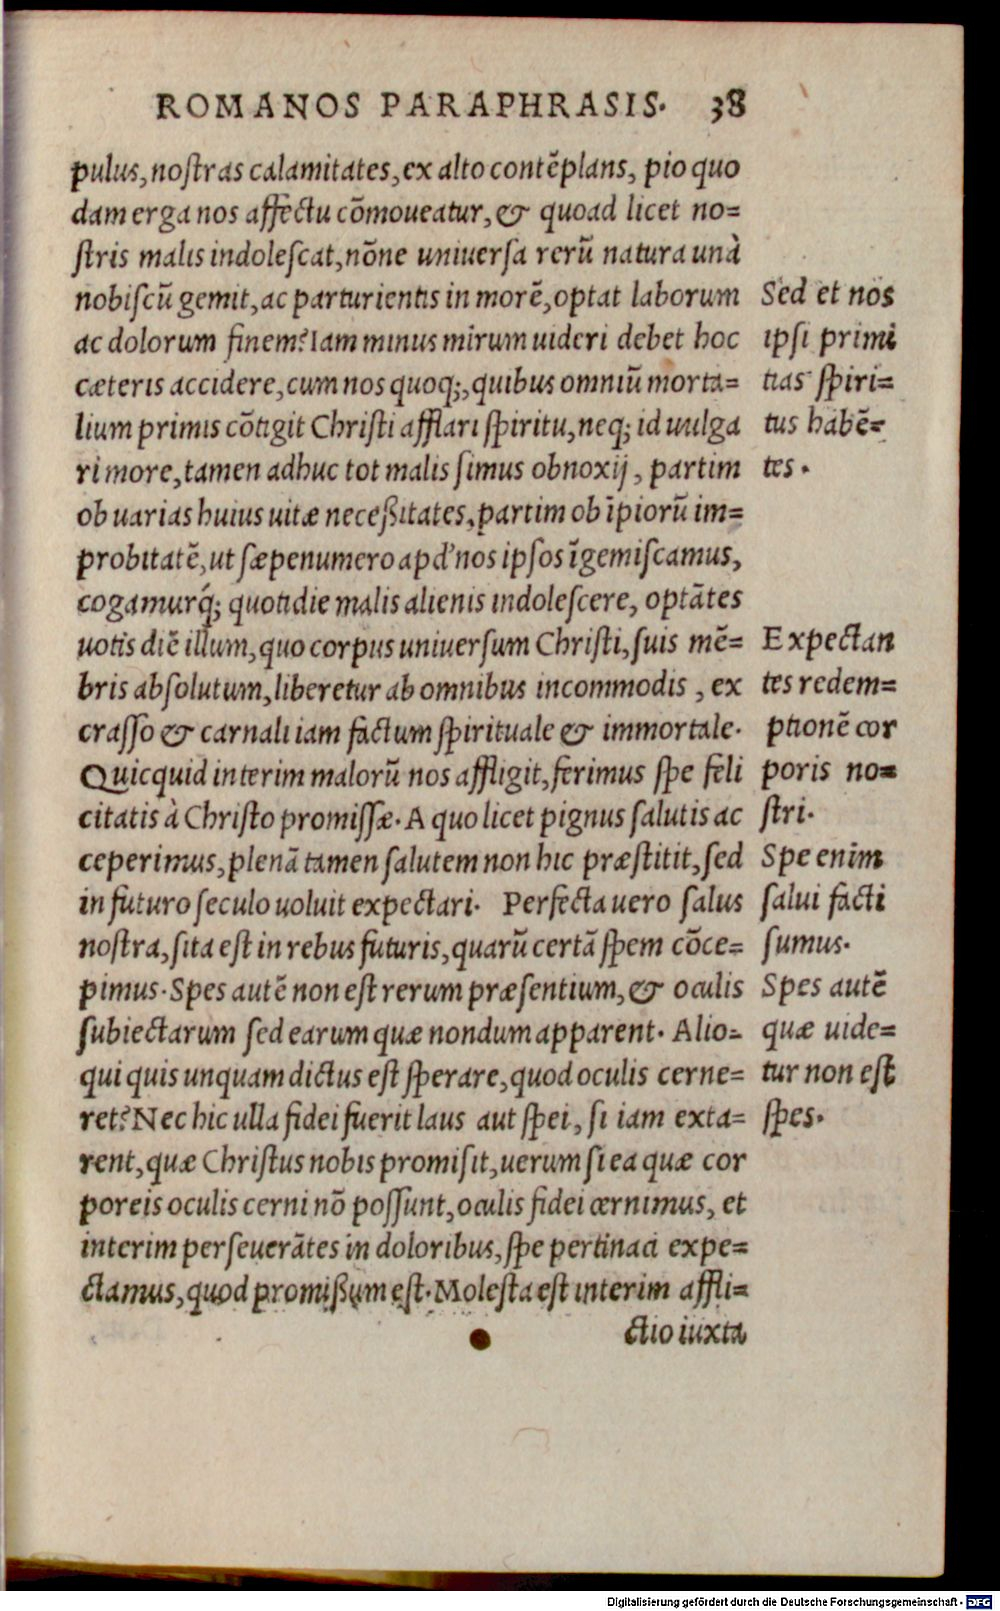 ROMANOS PARAPHRASIS. 38
pulus, nostras calamitates, ex alto contēplans, pio quo
dam erga nos affectu cōmoueatur, & quoad licet no=
stris malis indolescat, nōne uniuersa rerū natura unà
nobiscū gemit, ac parturientis in morē, optat laborum
ac dolorum finem? Iam minus mirum uideri debet hoc
cæteris accidere, cum nos quoq;, quibus omniū morta=
lium primis cōtigit Christi afflari spiritu, neq; id uulga
ri more, tamen adhuc tot malis simus obnoxij, partim
ob uarias huius uitæ necessitates, partim ob īpiorū im=
probitatē, ut sæpenumero apd' nos ipsos īgemiscamus,
cogamurq́; quotidie malis alienis indolescere, optātes
uotis diē illum, quo corpus uniuersum Christi, suis mē=
bris absolutum, liberetur ab omnibus incommodis, ex
crasso & carnali iam factum spirituale & immortale.
Quicquid interim malorū nos affligit, ferimus spe feli
citatis à Christo promissæ. A quo licet pignus salutis ac
ceperimus, plenā tamen salutem non hic præstitit, sed
in futuro seculo uoluit expectari. Perfecta uero salus
nostra, sita est in rebus futuris, quarū certā spem cōce=
pimus. Spes autē non est rerum præsentium, & oculis
subiectarum sed earum quæ nondum apparent. Alio=
qui quis unquam dictus est sperare, quod oculis cerne=
ret? Nec hic ulla fidei fuerit laus aut spei, si iam exta=
rent, quæ Christus nobis promisit, uerum si ea quæ cor
poreis oculis cerni nō possunt, oculis fidei cernimus, et
interim perseuerātes in doloribus, spe pertinaci expe=
ctamus, quod promissum est. Molesta est interim affli=
ctio iuxta
Sed et nos
ipsi primi
tias spiri=
tus habē=
tes.
Expectan
tes redem=
ptionē cor
poris no=
stri.
Spe enim
salui facti
sumus.
Spes autē
quæ uide=
tur non est
spes.
Digitalisierung gefördert durch die Deutsche Forschungsgemeinschaft - DFG